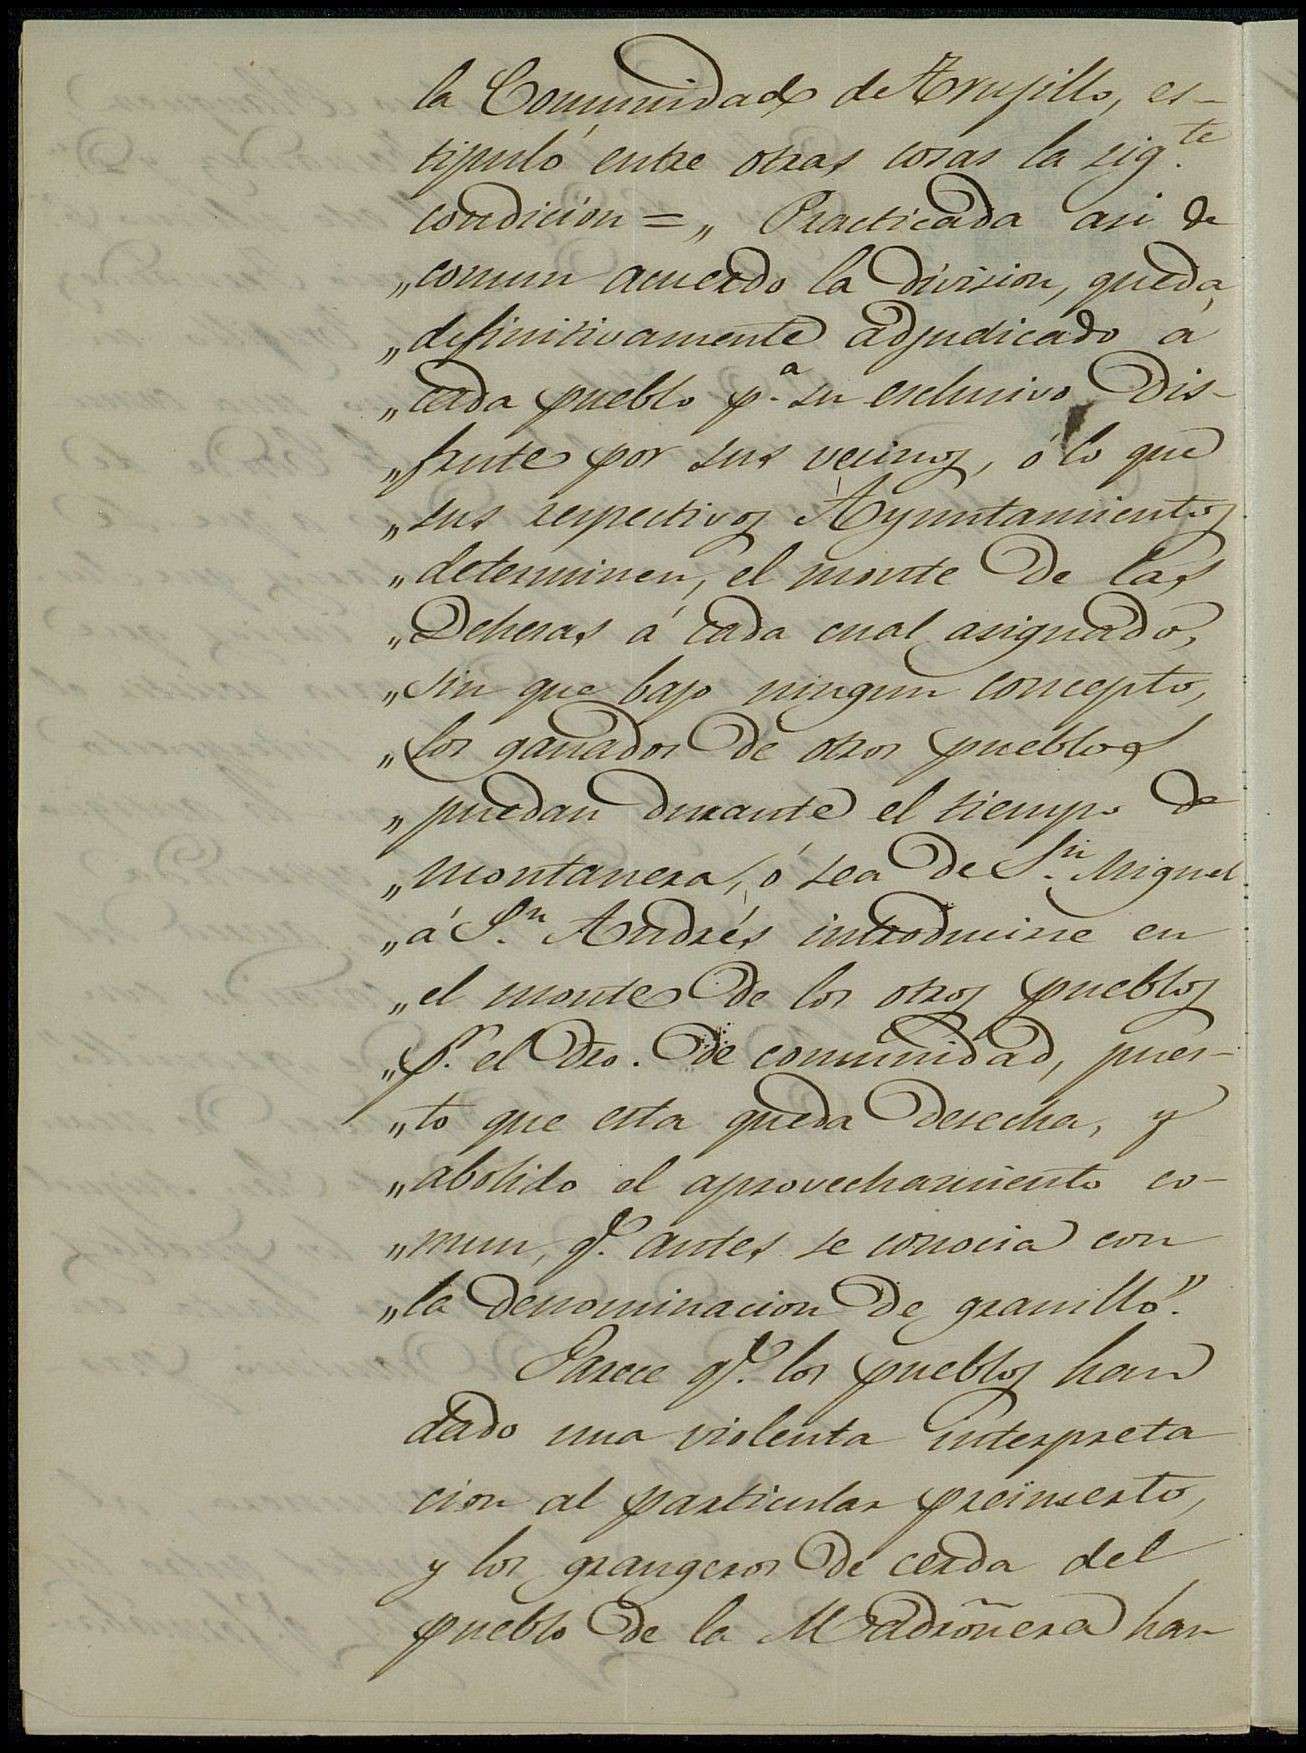 la Comunidad de Trujillo, es-
tipuló entre otras cosas la sig.te
condicion = „ Practicada asi de
„comun acuerdo la division, queda
„definitivamente adjudicado á
„cada pueblo p.a su esclusivo dis-
„frute por sus vecinos, ó lo que
„sus respectivos Ayuntamientos
„determinen, el monte de las
„Dehesas á cada cual asignado,
„sin que bajo ningun concepto,
„los ganados de otros pueblos
„puedan durante el tiempo de
„montanera, ó sea de S.n Miguel
„á S.n Andrés introducirse en
„el monte de los otros pueblos
„p.r el dro. de comunidad, pues-
„to que esta queda desecha, y
„abolido el aprovechamiento co-
„mun, q.e antes se conocia con
„la denominacion de granillo".
Parece q.e los pueblos han
dado una violenta interpreta
cion al particular preinserto,
y los grangeros de cerda del
pueblo de la Madroñera han